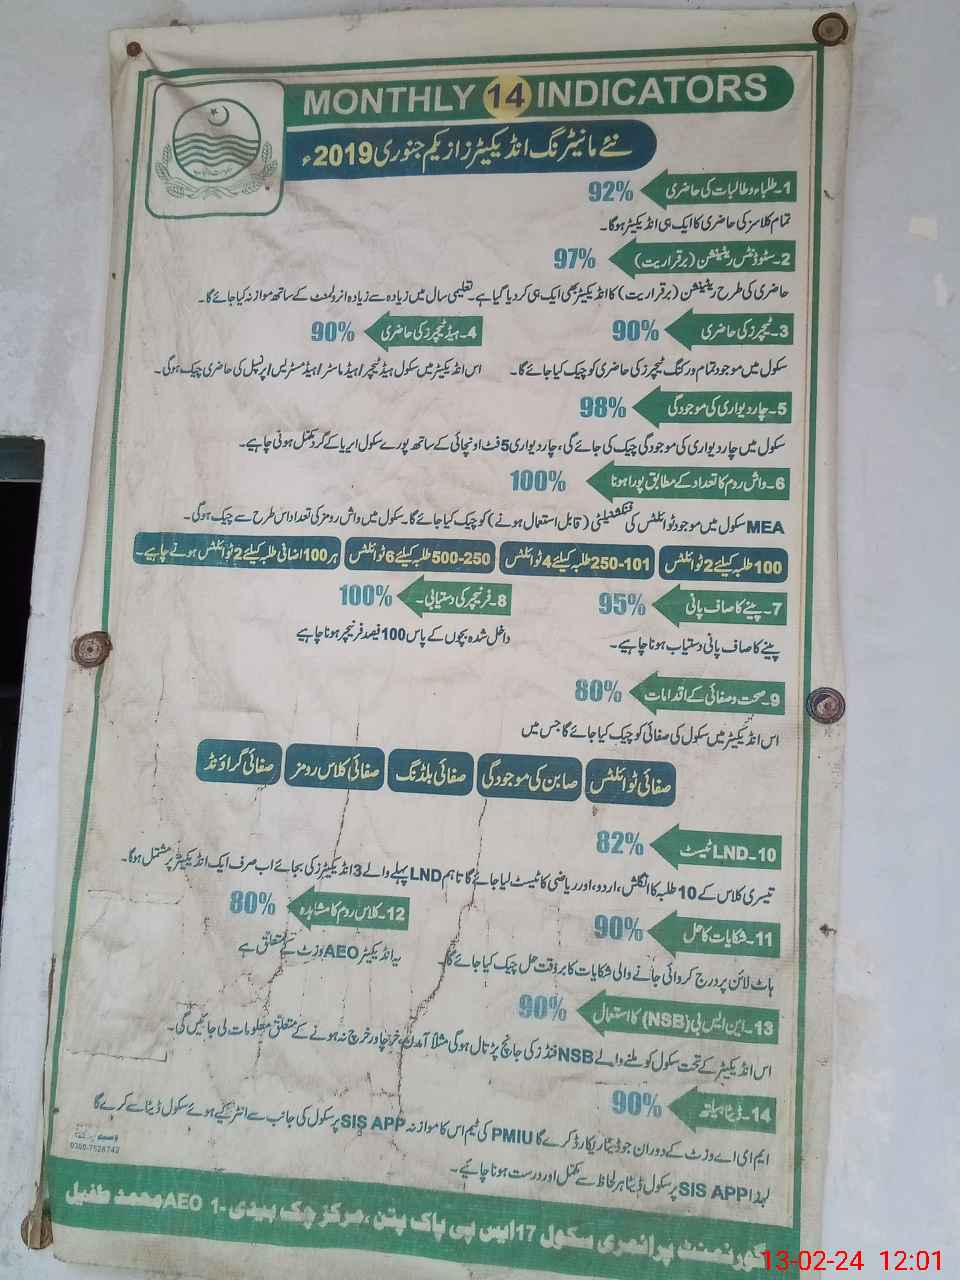 MONTHLY 14 INDICATORS
نئے مانیٹرنگ انڈیکیٹرز از یکم جنوری 2019ء
1۔ طلباء و طالبات کی حاضری 92%
تمام کلاسز کی حاضری کا ایک ہی انڈیکیٹر ہوگا۔
2۔ سٹوڈنٹس ریٹینشن (برقراریت) 97%
حاضری کی طرح ریٹینشن (برقراریت) کا انڈیکیٹر بھی ایک ہی کر دیا گیا ہے۔ تعلیمی سال میں زیادہ سے زیادہ انرولمنٹ کے ساتھ موازنہ کیا جائے گا۔
3۔ ٹیچرز کی حاضری 90%
سکول میں موجود تمام ورکنگ ٹیچرز کی حاضری کو چیک کیا جائے گا۔
4۔ ہیڈ ٹیچرز کی حاضری 90%
اس انڈیکیٹر میں سکول ہیڈ ٹیچر/ہیڈ ماسٹر/ہیڈ مسٹریس/پرنسپل کی حاضری چیک ہوگی۔
5۔ چار دیواری کی موجودگی 98%
سکول میں چار دیواری کی موجودگی چیک کی جائے گی، چار دیواری 5 فٹ اونچائی کے ساتھ پورے سکول ایریا کے گرد مکمل ہونی چاہیے۔
6۔ واش روم کا تعداد کے مطابق پورا ہونا 100%
MEA سکول میں موجود ٹوائلٹس کی فنکشنیلٹی (قابل استعمال ہونے) کو چیک کیا جائے گا۔ سکول میں واش رومز کی تعداد اس طرح سے چیک ہوگی۔
100 طلبہ کیلئے 2 ٹوائلٹس
101-250 طلبہ کیلئے 4 ٹوائلٹس
250-500 طلبہ کیلئے 6 ٹوائلٹس
ہر 100 اضافی طلبہ کیلئے 2 ٹوائلٹس ہونے چاہیے۔
7۔ پینے کا صاف پانی 95%
پینے کا صاف پانی دستیاب ہونا چاہیے۔
8۔ فرنیچر کی دستیابی۔ 100%
داخل شدہ بچوں کے پاس 100 فیصد فرنیچر ہونا چاہیے
9۔ صحت و صفائی کے اقدامات 80%
اس انڈیکیٹر میں سکول کی صفائی کو چیک کیا جائے گا جس میں
صفائی ٹوائلٹس
صابن کی موجودگی
صفائی بلڈنگ
صفائی کلاس رومز
صفائی گراؤنڈ
10۔ LND ٹیسٹ 82%
تیسری کلاس کے 10 طلبہ کا انگلش، اردو، اور ریاضی کا ٹیسٹ لیا جائے گا تاہم LND پہلے والے 3 انڈیکیٹرز کی بجائے اب صرف ایک انڈیکیٹر پر مشتمل ہوگا۔
11۔ شکایات کا حل 90%
ہاٹ لائن پر درج کروائی جانے والی شکایات کا بروقت حل چیک کیا جائے گا۔
12۔ کلاس روم کا مشاہدہ 80%
یہ انڈیکیٹر AEO وزٹ کے متعلق ہے
13۔ این ایس بی (NSB) کا استعمال 90%
اس انڈیکیٹر کے تحت سکول کو ملنے والے NSB فنڈز کی جانچ پڑتال ہوگی مثلاً آمدن، خرچ اور خرچ نہ ہونے کے متعلق معلومات لی جائیں گی۔
14۔ ڈیٹا ہیلتھ 90%
ایم ای اے وزٹ کے دوران جو ڈیٹا ریکارڈ کرے گا PMIU کی ٹیم اس کا موازنہ SIS APP پر سکول کی جانب سے انٹر کیے ہوئے سکول ڈیٹا سے کرے گا
لہذا SIS APP پر سکول ڈیٹا ہر لحاظ سے مکمل اور درست ہونا چاہیے۔
گورنمنٹ پرائمری سکول 17 ایس پی پاک پتن، مرکز چک بیدی-1 AEO محمد طفیل
13-02-24 12:01